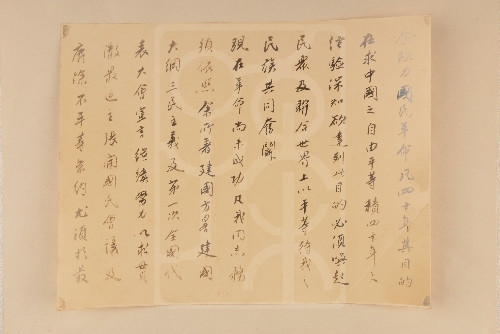 余致力國民革命凡四十年其目的
在求中國之自由平等積四十年之
經驗深知欲達到此目的必須喚起
民眾及聯合世界上以平等待我之
民族共同奮鬪
現在革命尚未成功凡我同志務
須依照余所著建國方畧建國
大綱三民主義及第一次全國代
表大會宣言繼續努力以求貫
澈最近主張開國民會議及
廢除不平等條約尤須於最